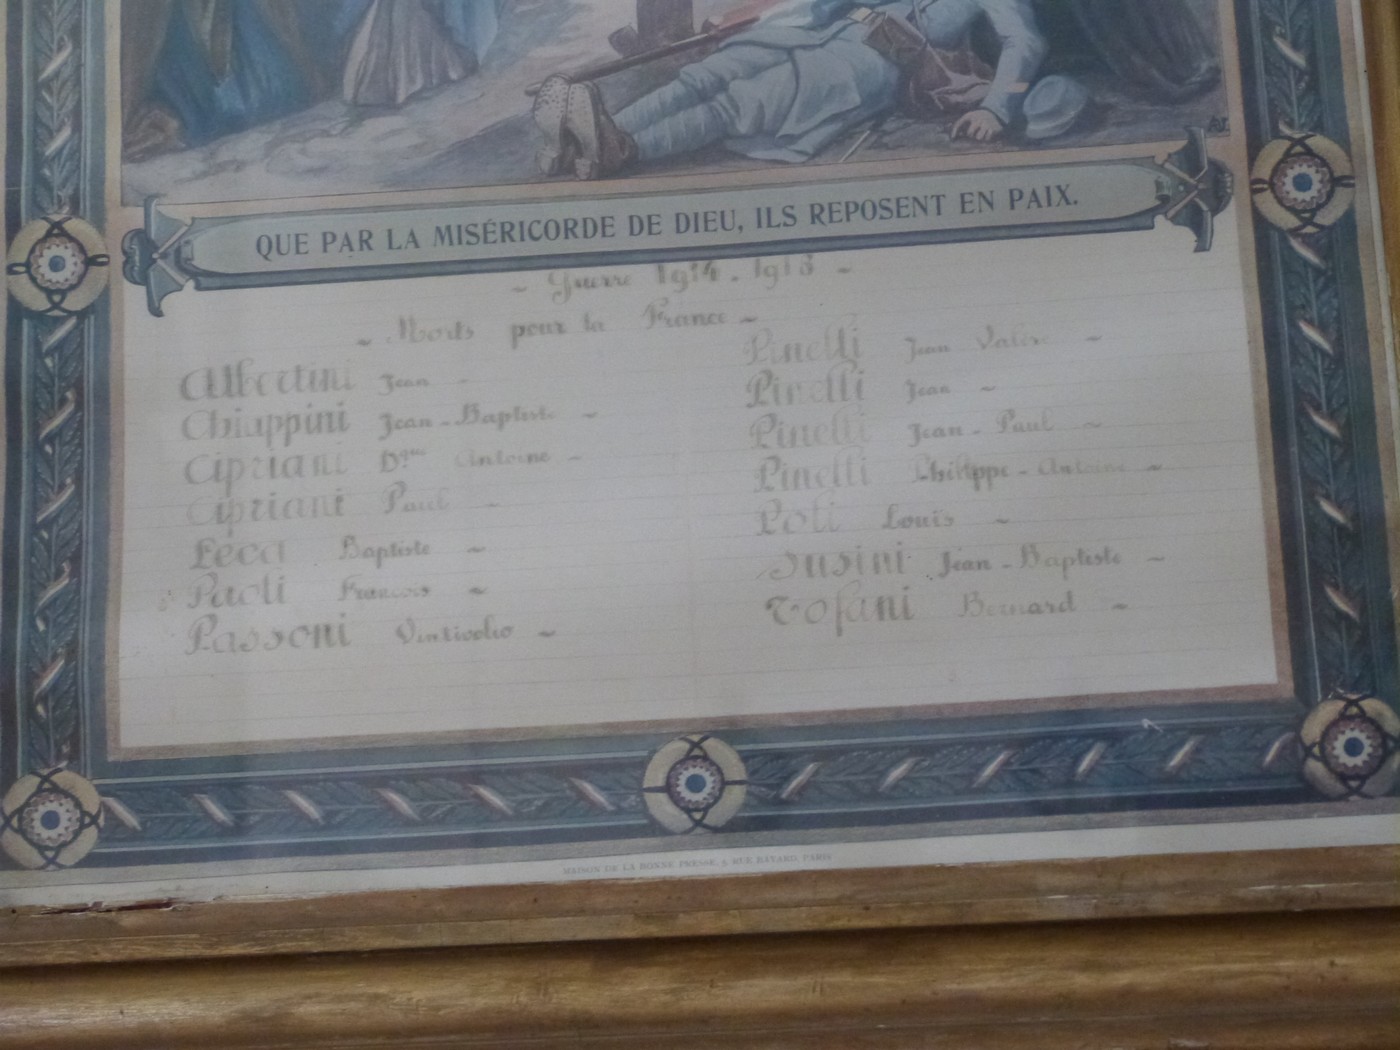 QUE PAR LA MISÉRICORDE DE DIEU, ILS REPOSENT EN PAIX.
~ Guerre 1914 - 1918 ~
~ Morts pour la France ~
Albertini Jean -
Chiappini Jean-Baptiste ~
Cipriani Dque Antoine ~
Cipriani Paul ~
Leca Baptiste ~
Paoli Francois ~
Passoni Vintivolio ~
Pinelli Jean Valère ~
Pinelli Jean ~
Pinelli Jean-Paul ~
Pinelli Philippe-Antoine ~
Poli Louis ~
Susini Jean-Baptiste ~
Tofani Bernard ~
MAISON DE LA BONNE PRESSE, 5, RUE BAYARD, PARIS